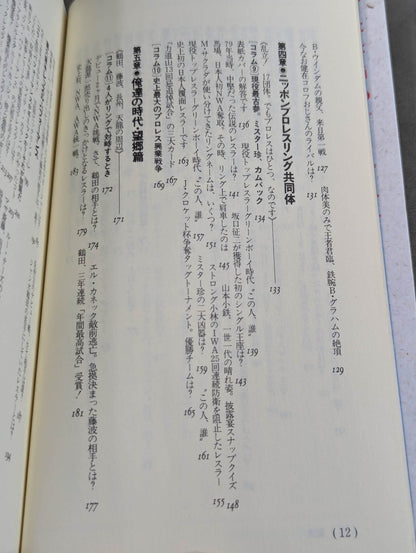 B・ウインダムの親父、来日第一戦 127 肉体美のみで王者君臨、鉄腕B・グラハムの絶頂 129
今なお健在コロフおじさんのライバルは？ 131
第四章●ニッポンプロレスリング共同体 133
乱立！17団体、でもプロレスはひとつ、なのです
［コラム⑨］現役最古参。ミスター珍、カムバック 134
表紙カバーの解答です 136 現役トップレスラーグリーンボーイ時代、“この人、誰” 139
79年当時、中堅だった伝説のレスラーは？ 141 坂口征二が獲得した初のシングル王座は？ 143
馬場、日本人初NWA奪取。その時、リング上で肩車したのは 145 山本小鉄、一世一代の晴れ姿。披露宴スナップクイズ 148
M・サクラダが使い分けてきたリングネームは、いくつ？ 151 ストロング小林のIWA25回連続防衛を阻止したレスラー 155
現役トップレスラーグリーンボーイ時代、“この人、誰” 157 ミスター珍の二大凶器は？ 159 “この人、誰” 161
史上初の日本人覆面レスラーです 163 J・クロケット杯争奪タッグトーナメント。優勝チームは？ 165
「力道山13回忌追善試合」の三大カード 167
［コラム⑩］史上最大のプロレス興業戦争 169
第五章●俺達の時代・望郷篇 171
鶴田、藤波、長州、天龍の鼎立
［コラム⑪］4人がリングで対峙するとき 172
デビュー3カ月でNWA挑戦。さて、鶴田の相手とは？ 174 エル・カネック敵前逃亡。急拠決まった藤波の相手とは？ 177
天龍第一
史上初、NWA、AWA挑戦 179 鶴田、三年連続「年間最高試合」受賞！ 181
(12)